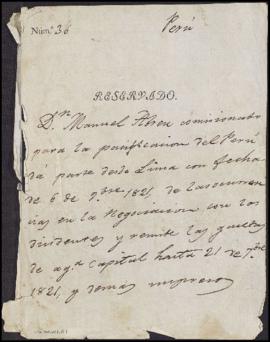 Perú
Núm.º 36
RESERVADO.
Dn. Manuel Abreu comisionado
para la pacificacion del Perú
dá parte desde Lima con fecha
de 6 de 9bre 1821, de las ocurren
cias en la Negociacion con los
disidentes y remite las
de aqa. Capital hasta 21 de
1821, y demas impresos